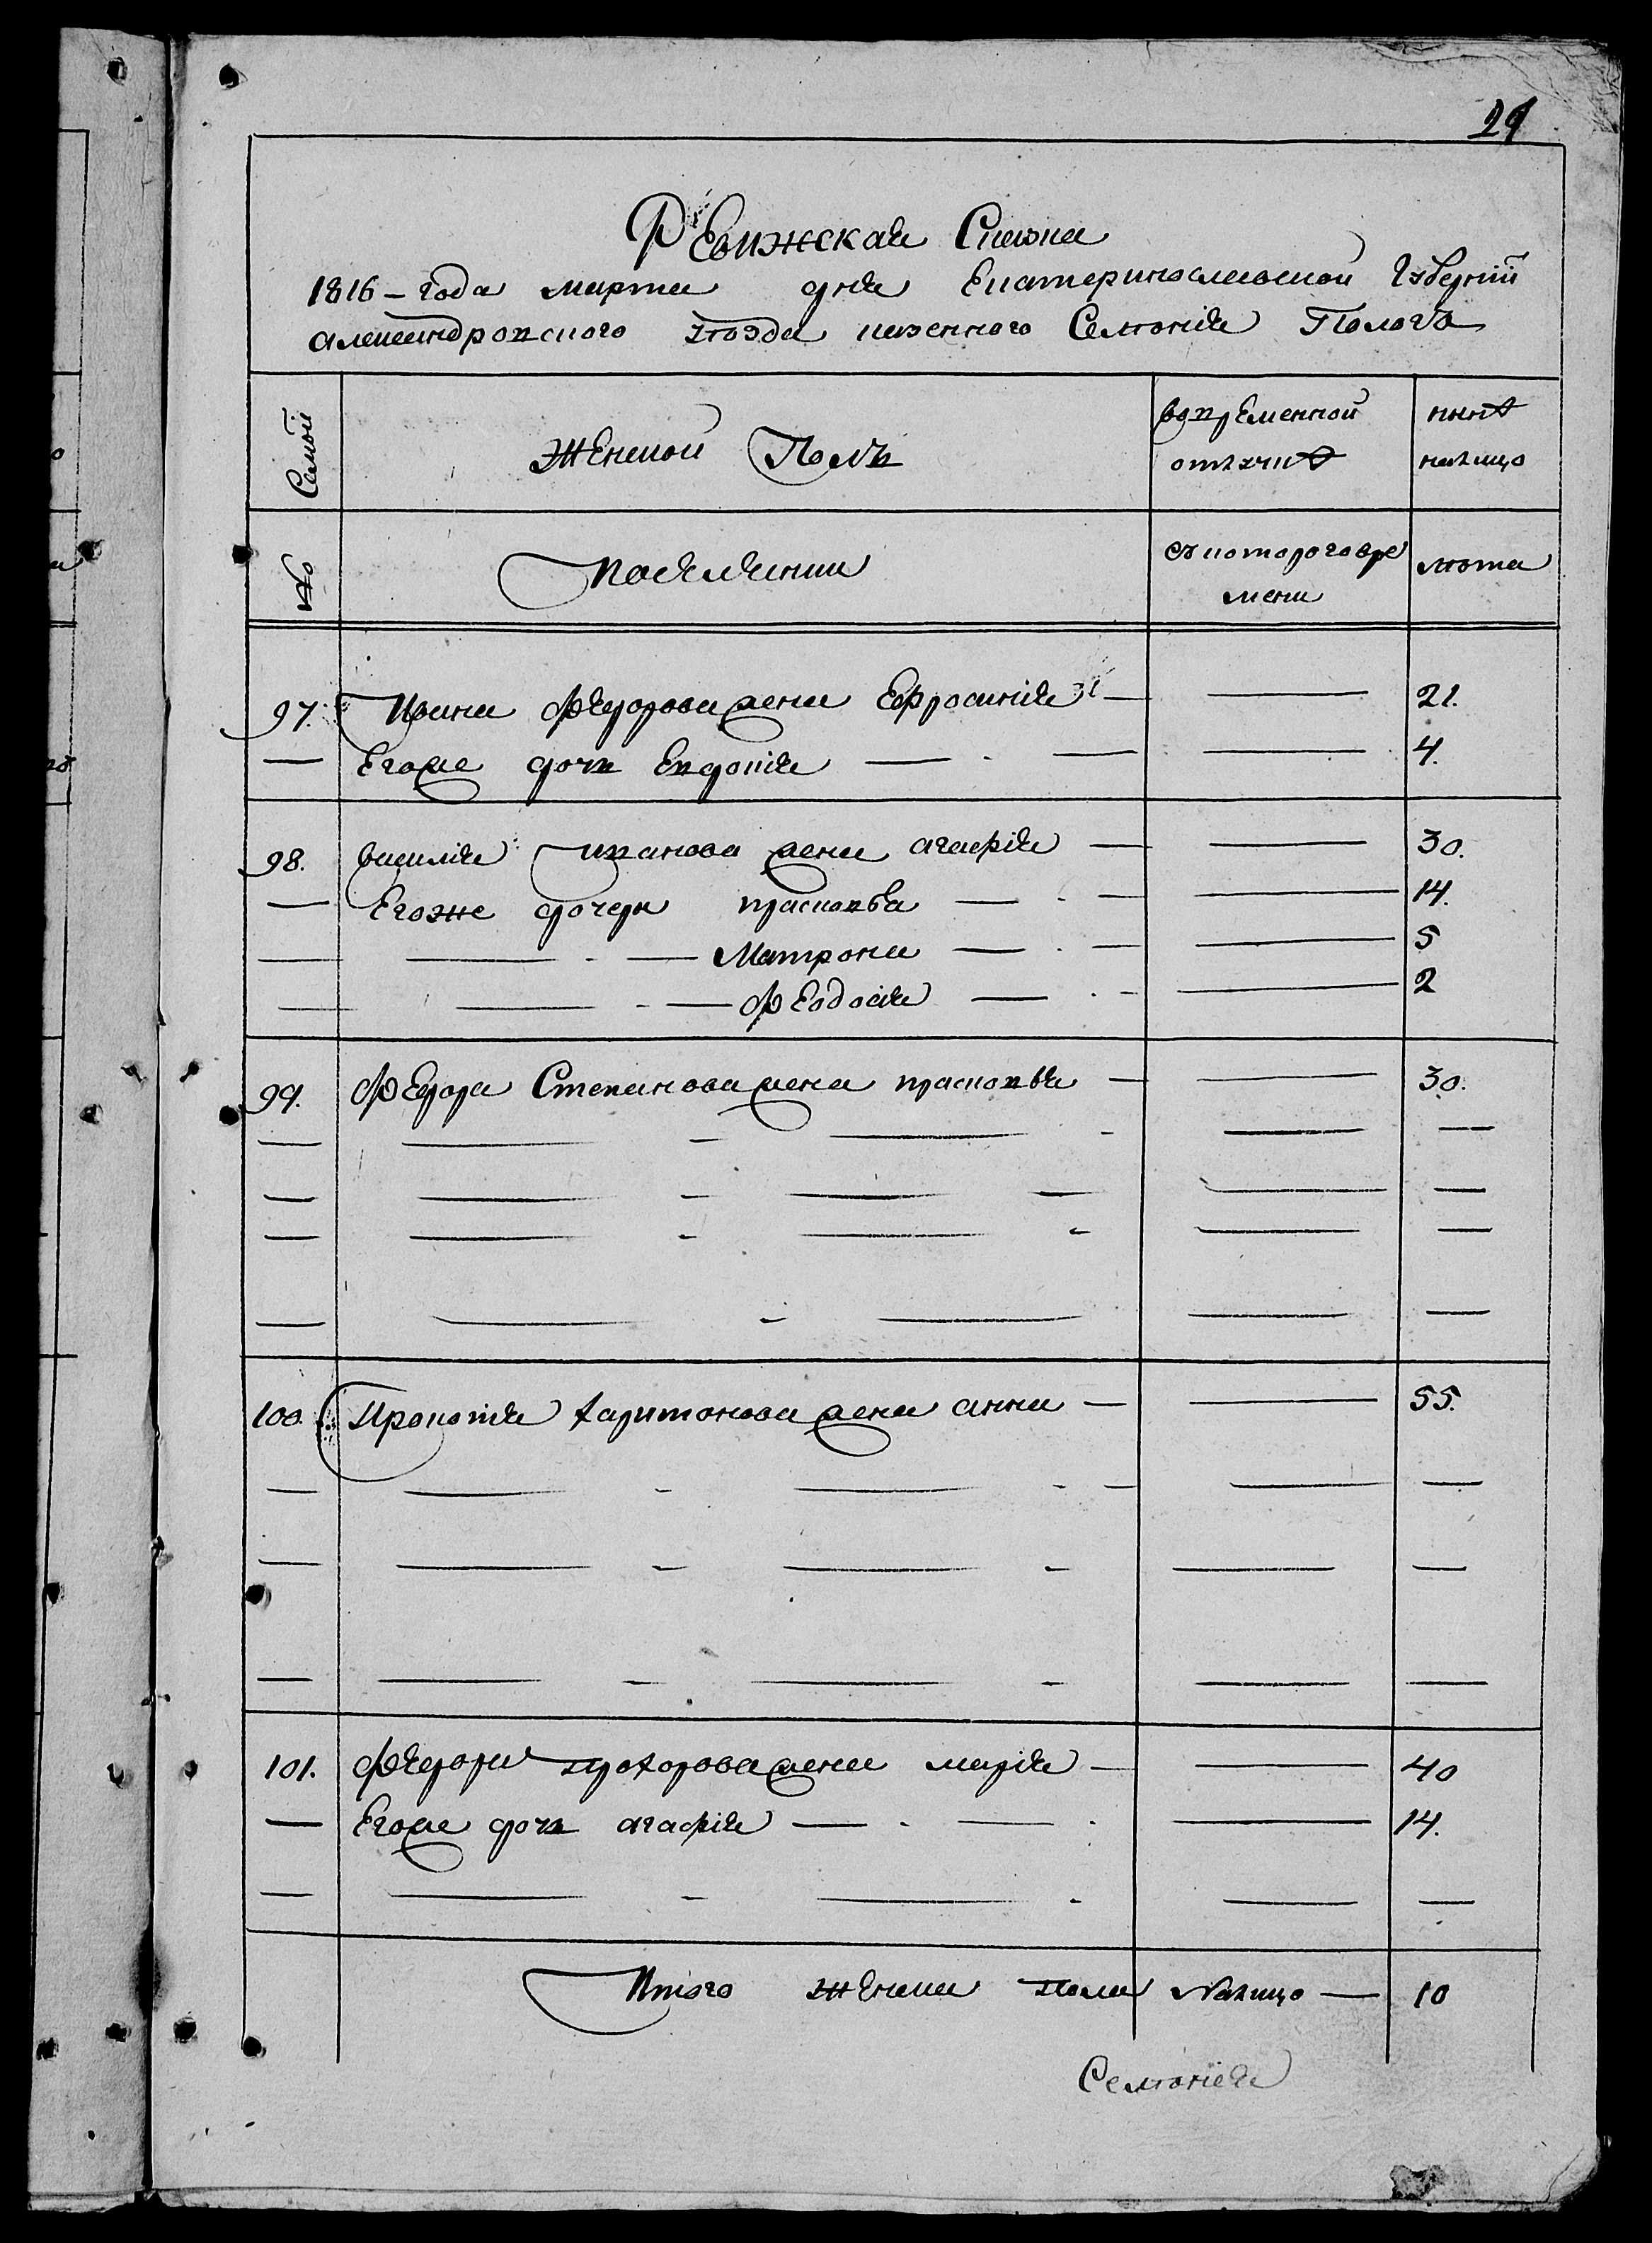 29
Ревижская Сказка
1816 – Года марта дня Екатеринославской Губерніи
александровского уезда казенного Селенія Полога
Семьи
Женской Полъ
вовременной отлучке
ныне налицо
№
поселянки
съ которого вре мени
лета
97. Ивана федорова жена Ефросинія — — 21.
— Егоже дочь Евдокія — — — 4.
98. василія иванова жена агафія — — 30.
— Егоже дочери прасковья — — — 14.
— — — Матрона — — — 5
— — — феодосія — — — 2
99. федора Степанова жена прасковья — — 30.
100. Прокофія харитонова жена анна — — 55.
101. федора прохорова жена марія — — 40
— Егоже дочь агафія — — — 14.
Итого женска пола налицо — 10
Селенія